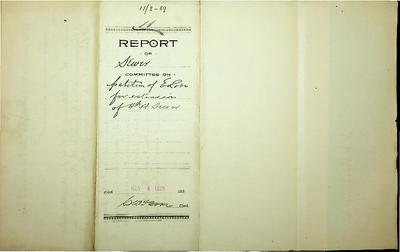 11/2-89
REPORT
OF
Sewer
COMMITTEE ON
petition of E
for extension
of 4th St Sewer
NOV 4
188
Clerk